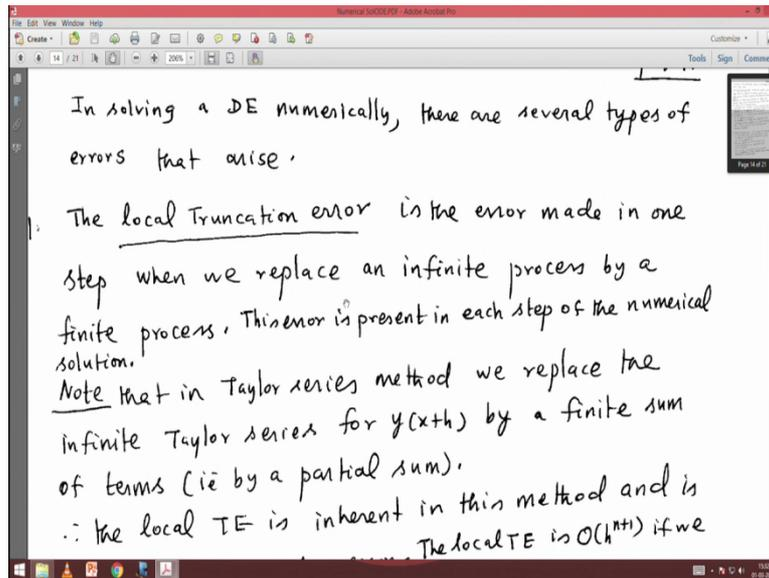 Numerical SolODE.PDF - Adobe Acrobat Pro
File Edit View Window Help
Create Customize
14 / 21 206% Tools Sign Comme
In solving a DE numerically, there are several types of
errors that arise.
Page 14 of 21
1. The local Truncation error is the error made in one
step when we replace an infinite process by a
finite process. This error is present in each step of the numerical
solution.
Note that in Taylor series method we replace the
infinite Taylor series for y(x+h) by a finite sum
of terms (ie by a partial sum).
∴ the local TE is inherent in this method and is
The local TE is O(h^{n+1}) if we